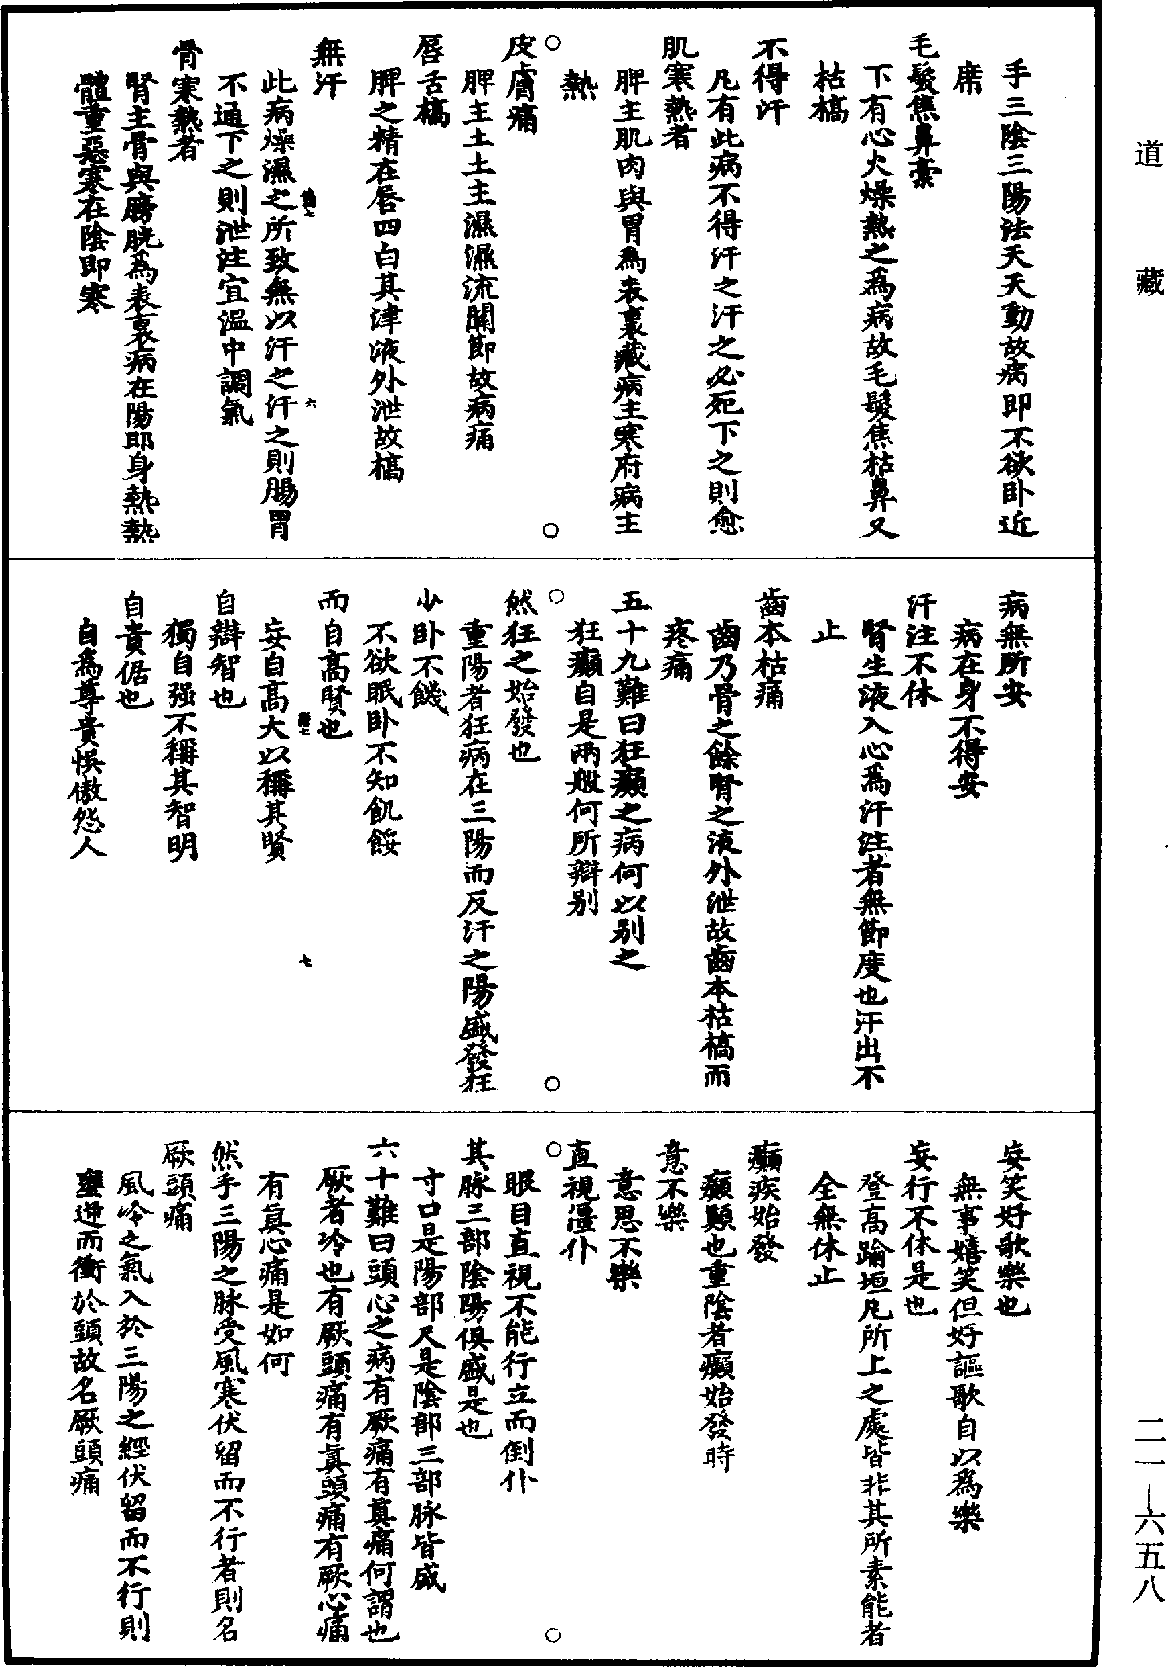 道藏
手三陰三陽法天天動故病即不欲卧近
席
毛髮焦鼻槀
下有心火燥熱之為病故毛髮焦枯鼻又
枯槁
不得汗
凡有此病不得汗之汗之必死下之則愈
肌寒熱者
脾主肌肉與胃為表裏藏病主寒府病主
熱
皮膚痛
脾主土土主濕濕流關節故病痛
唇舌槁
脾之精在唇四白其津液外泄故槁
無汗
此病燥濕之所致無以汗之汗之則腸胃
不通下之則泄注宜溫中調氣
骨寒熱者
腎主骨與膀胱為表裏病在陽即身熱熱
體重惡寒在陰即寒
六
病無所安
病在身不得安
汗注不休
腎生液入心為汗注者無節度也汗出不
止
齒本枯痛
齒乃骨之餘腎之液外泄故齒本枯槁而
疼痛
五十九難曰狂癲之病何以別之
狂癲自是兩般何所辯別
然狂之始發也
重陽者狂病在三陽而反汗之陽盛發狂
少卧不饑
不欲眠卧不知飢餒
而自高賢也
妄自高大以稱其賢
自辯智也
獨自强不稱其智明
自貴倨也
自為尊貴悞傲忽人
七
妄笑好歌樂也
無事嬉笑但好謳歌自以為樂
妄行不休是也
登高踰垣凡所上之處皆非其所素能者
全無休止
癲疾始發
癲顛也重陰者癲始發時
意不樂
意思不樂
直視僵仆
眼目直視不能行立而倒仆
其脉三部陰陽俱盛是也
寸口是陽部尺是陰部三部脉皆盛
六十難曰頭心之病有厥痛有真痛何謂也
厥者冷也有厥頭痛有真頭痛有厥心痛
有真心痛是如何
然手三陽之脉受風寒伏留而不行者則名
厥頭痛
風冷之氣入於三陽之經伏留而不行則
壅逆而衝於頭故名厥頭痛
二一—六五八